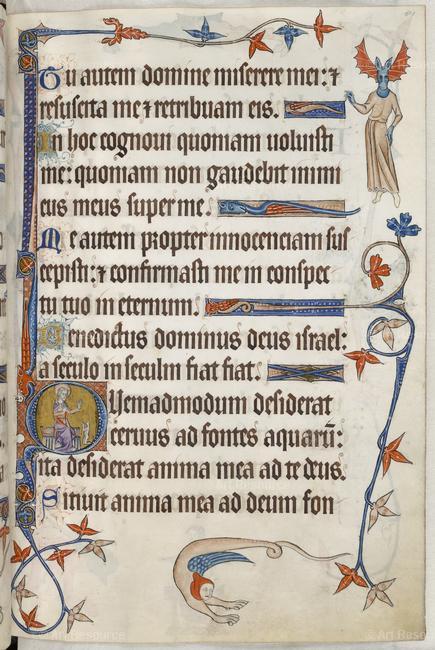 Tu autem domine miserere mei: ⁊
resuscita me ⁊ retribuam eis.
In hoc cognoui quoniam uoluisti
me: quoniam non gaudebit inimi
cus meus super me.
Me autem propter innocenciam sus
cepisti: ⁊ confirmasti me in conspec
tu tuo in eternum.
Benedictus dominus deus israel:
a seculo in seculm fiat fiat.
Quemadmodum desiderat
ceruus ad fontes aquarū:
ita desiderat anima mea ad te deus.
Sitiuit anima mea ad deum fon
© Art Resource